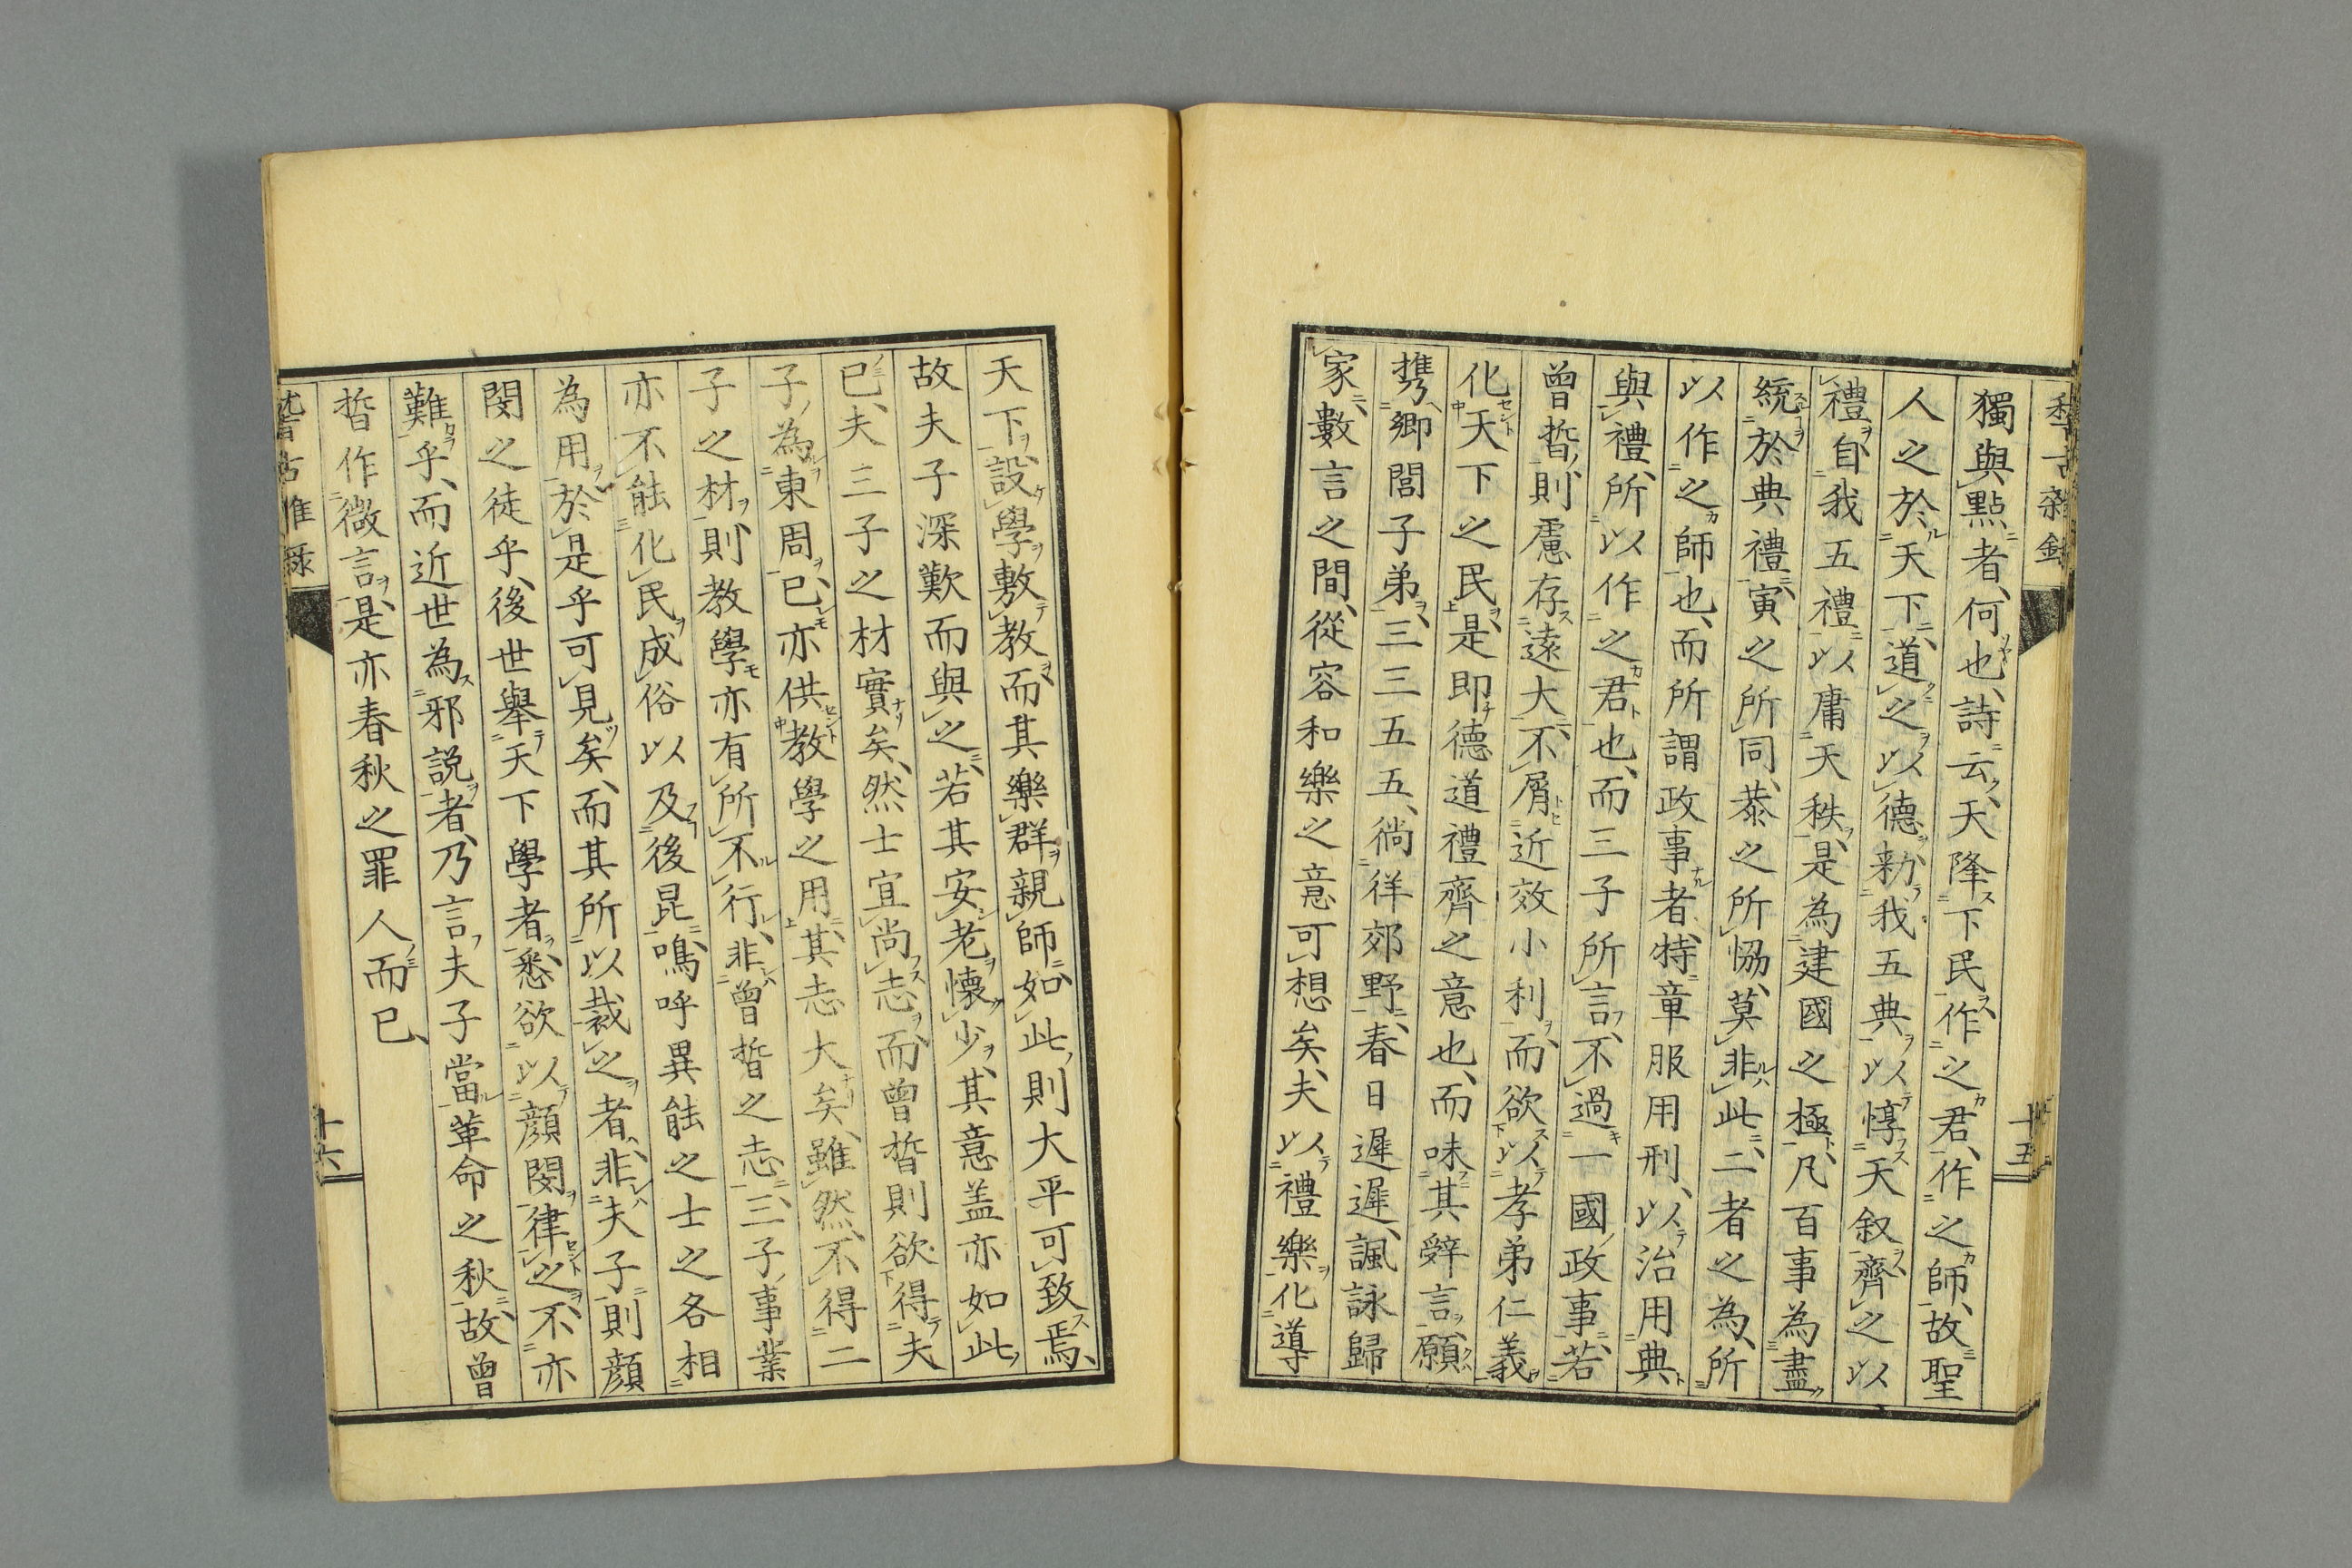 獨與點者、何也、詩云、天降下民作之君、作之師、故聖
人之於天下、道之以德、勑我五典以惇天叙齊之以
禮、自我五禮以庸天秩、是為建國之極、凡百事為盡
統於典禮、寅之所同、恭之所恊、莫非此二者之為、所
以作之師也、而所謂政事者、特章服用刑、以治用典
與禮、所以作之君也、而三子所言、不過一國政事、若
曾晳、則慮存遠大、不屑近效小利、而欲以孝弟仁義
化天下之民、是即德道禮齊之意也、而味其辭言、願
携鄉閭子弟、三三五五、徜徉郊野、春日遲遲、諷詠歸
家、數言之間、從容和樂之意可想矣、夫以禮樂化導
天下、設學敷教、而其樂群親師如此、則大平可致焉、
故夫子深歎而與之、若其安老懷少、其意盖亦如此
已、夫三子之材實矣、然士宜尚志、而曾晳則欲得夫
子為東周、已亦供教學之用、其志大矣、雖然、不得二
子之材、則教學亦有所不行、非曾晳之志、三子事業
亦不能化民成俗以及後昆、嗚呼異能之士之各相
為用、於是乎可見矣、而其所以裁之者、非夫子則顔
閔之徒乎、後世舉天下學者、悉欲以顔閔律之、不亦
難乎、而近世為邪説者、乃言夫子當革命之秋、故曾
晳作微言、是亦春秋之罪人而已、
稽古雜録
十五
十六